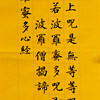 上呪是無等等
若波羅蜜多呪
波羅僧揭諦
蜜多心經